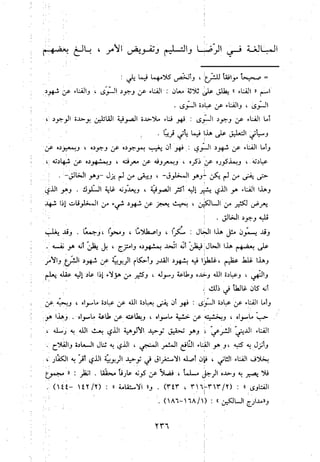 المبالغـة فـي الرّضـا والتسليم وتفويض الأمر ، بالـغ بعضهـم
= صحيحة موافقاً للشرع ، وألخص كلامهما فيما يلي :
اسم « الفناء » يطلق على ثلاثة معان : الفناء عن وجود السّوى ، والفناء عن شهود
السّوى ، والفناء عن عبادة السّوى .
أما الفناء عن وجود السّوى : فهو فناء ملاحدة الصوفية القائلين بوحدة الوجود ،
وسيأتي التعليق على هذا فيما يأتي قريباً .
وأما الفناء عن شهود السّوى : فهو أن يغيب بموجوده عن وجوده ، وبمعبوده عن
عبادته ، وبمذكوره عن ذكره ، وبمعروفه عن معرفته ، وبمشهوده عن شهادته ،
حتى يفنى من لم يكن - وهو المخلوق - ويبقى من لم يزل - وهو الخالق - .
وهذا الفناء هو الذي يشير إليه أكثر الصوفية ، ويعدّونه غاية السلوك . وهو الذي
يعرض لكثير من السالكين ، بحيث يغيب عن شهود شيء من المخلوقات إذا شهد
قلبه وجود الخالق .
وقد يسمّون مثل هذا الحال : سُكراً ، واصطلاماً ، ومحواً ، وجمعاً . وقد يغلب
شهود القلب على بعضهم في هذا الحال فيظنّ أنه اتّحد بمشهوده وامتزج ، بل يظن أنه هو نفسه .
وهذا غلط عظيم ، غلطوا فيه بشهود القدر وأحكام الربوبيّة عن شهود الشرع والأمر
والنّهي ، وعبادة الله وحده وطاعة رسوله ، وكثير من هؤلاء إذا عاد إليه عقله يعلم
أنه كان غالطاً في ذلك .
وأما الفناء عن عبادة السّوى : فهو أن يفنى بعبادة الله عن عبادة ما سواه ، وبحبّه عن
حبّ ما سواه ، وبخشيته عن خشية ما سواه ، وبطاعته عن طاعة ما سواه . وهذا هو
الفناء الدينيّ الشرعيّ ، وهو تحقيق توحيد الألوهية الذي بعث الله به رسله ،
وأنزل به كتبه ، وهو الفناء النّافع المثمر المنجي ، الذي به تنال السعادة والفلاح .
بخلاف الفناء الثاني ، فإن أصله الاستغراق في توحيد الربوبيّة الذي أقرّ به الكفّار ،
فلا يصير به وحده الرجل مسلماً ، فضلاً عن كونه عارفاً محققاً . انظر : « مجموع
الفتاوى » : (٢/٣١٣-٣١٦ ، ٣٤٣) و« الاستقامة » : (٢/١٤٢ -١٤٤) .
و«مدارج السالكين » : (١/١٦٨-١٨٦) .
٢٣٦